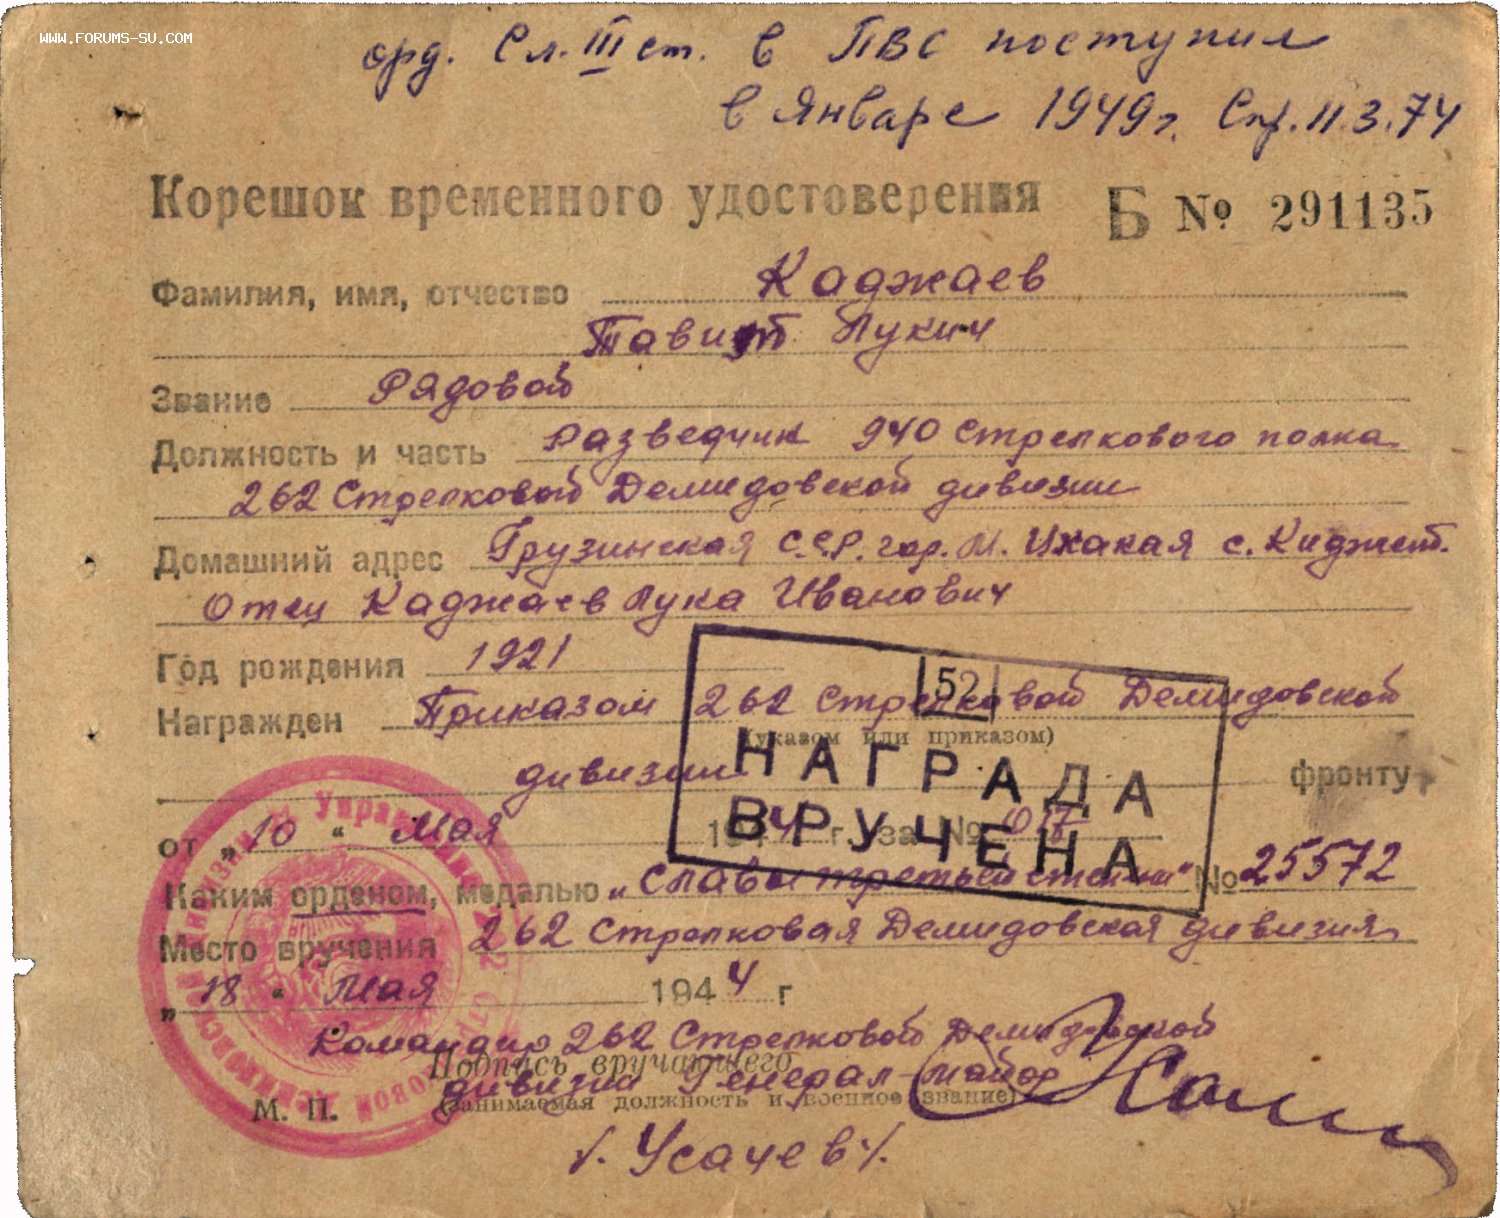 WWW.FORUMS-SU.COM
орд. Сл. III ст. в ПВС поступил
в Январе 1949 г. Спр. 11.3.74
Корешок временного удостоверения Б № 291135
Фамилия, имя, отчество Каджаев
Лукич
Звание Рядовой
Должность и часть Разведчик 940 Стрелкового полка
262 Стрелковой Демидовской дивизии
Домашний адрес Грузинская С.С.Р. гор. М. Цхакая с.
Отец Каджаев Лука Иванович
Год рождения 1921
52
Награжден Приказом 262 Стрелковой Демидовской
(указом или приказом)
дивизии фронту
НАГРАДА
ВРУЧЕНА
от „10“ Мая 1944 г. за №
Каким орденом, медалью „Славы третьей степени“ № 25572
Место вручения 262 Стрелковая Демидовская дивизия
„18“ Мая 1944 г
Командир 262 Стрелковой Демидовской
Подпись вручающего
дивизии Генерал-майор
(занимаемая должность и военное звание)
М. П.
/. Усачев /.